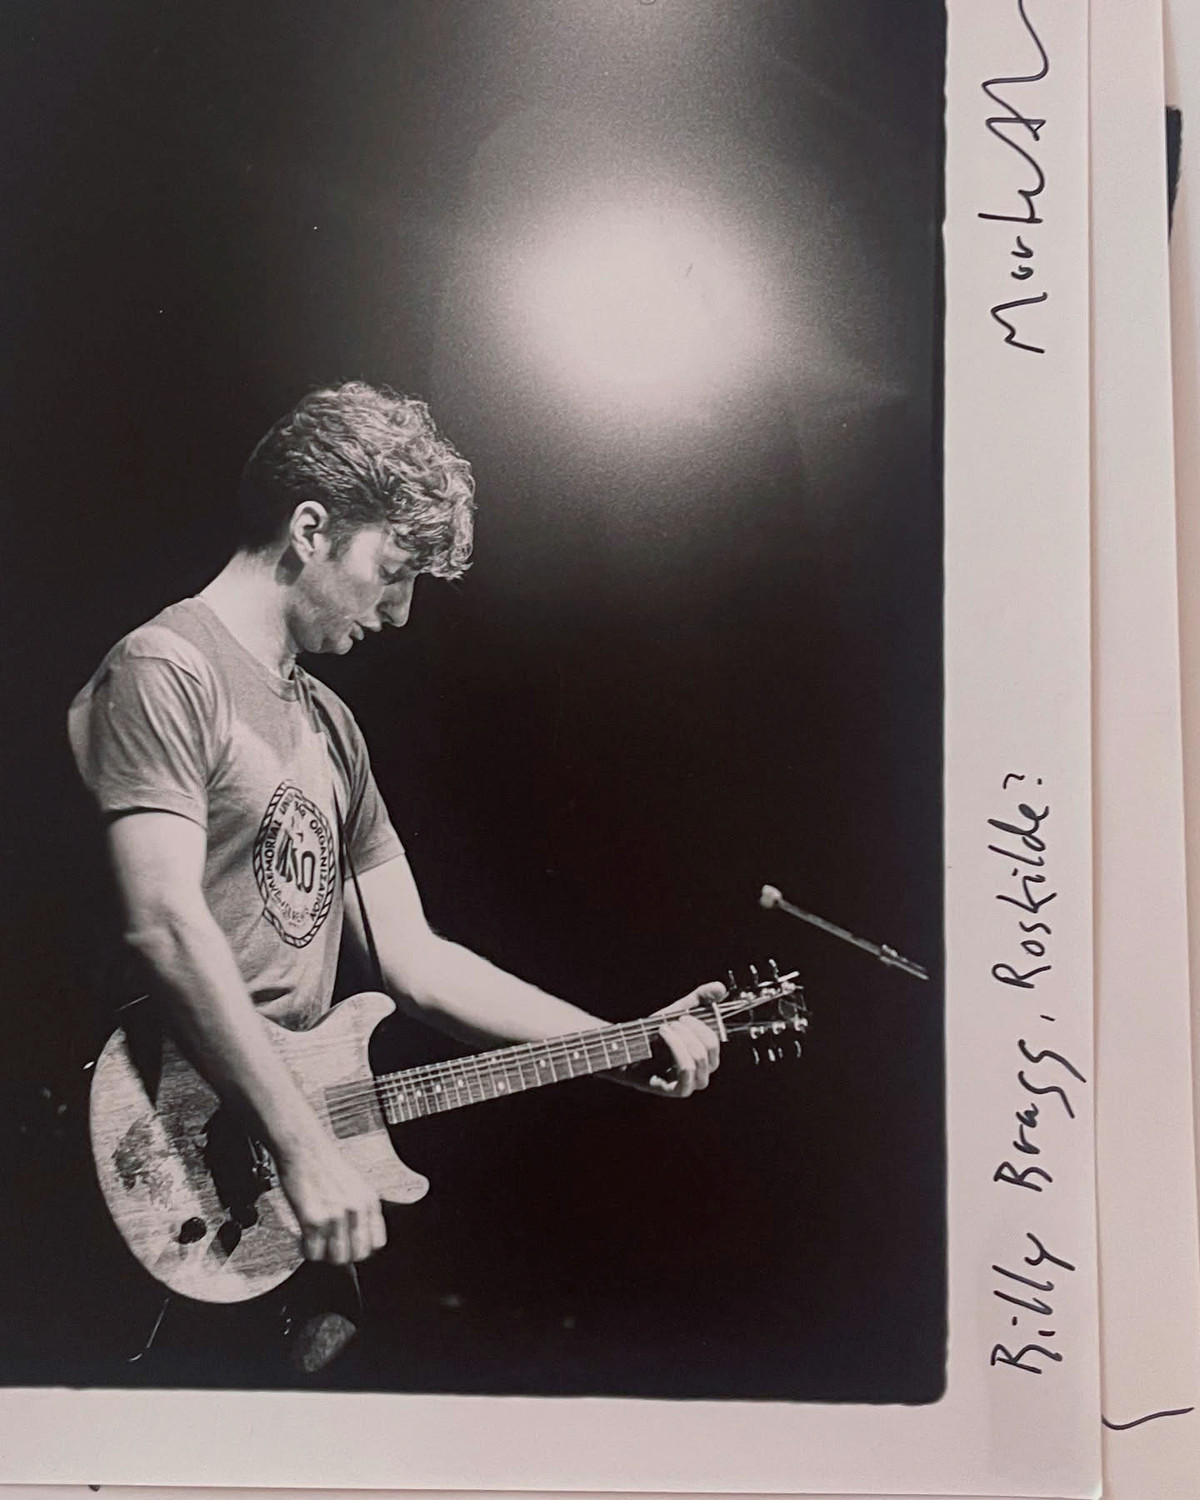 Billy Bragg, Roskilde?
Morten
MEMORIAL
ORGANIZATION